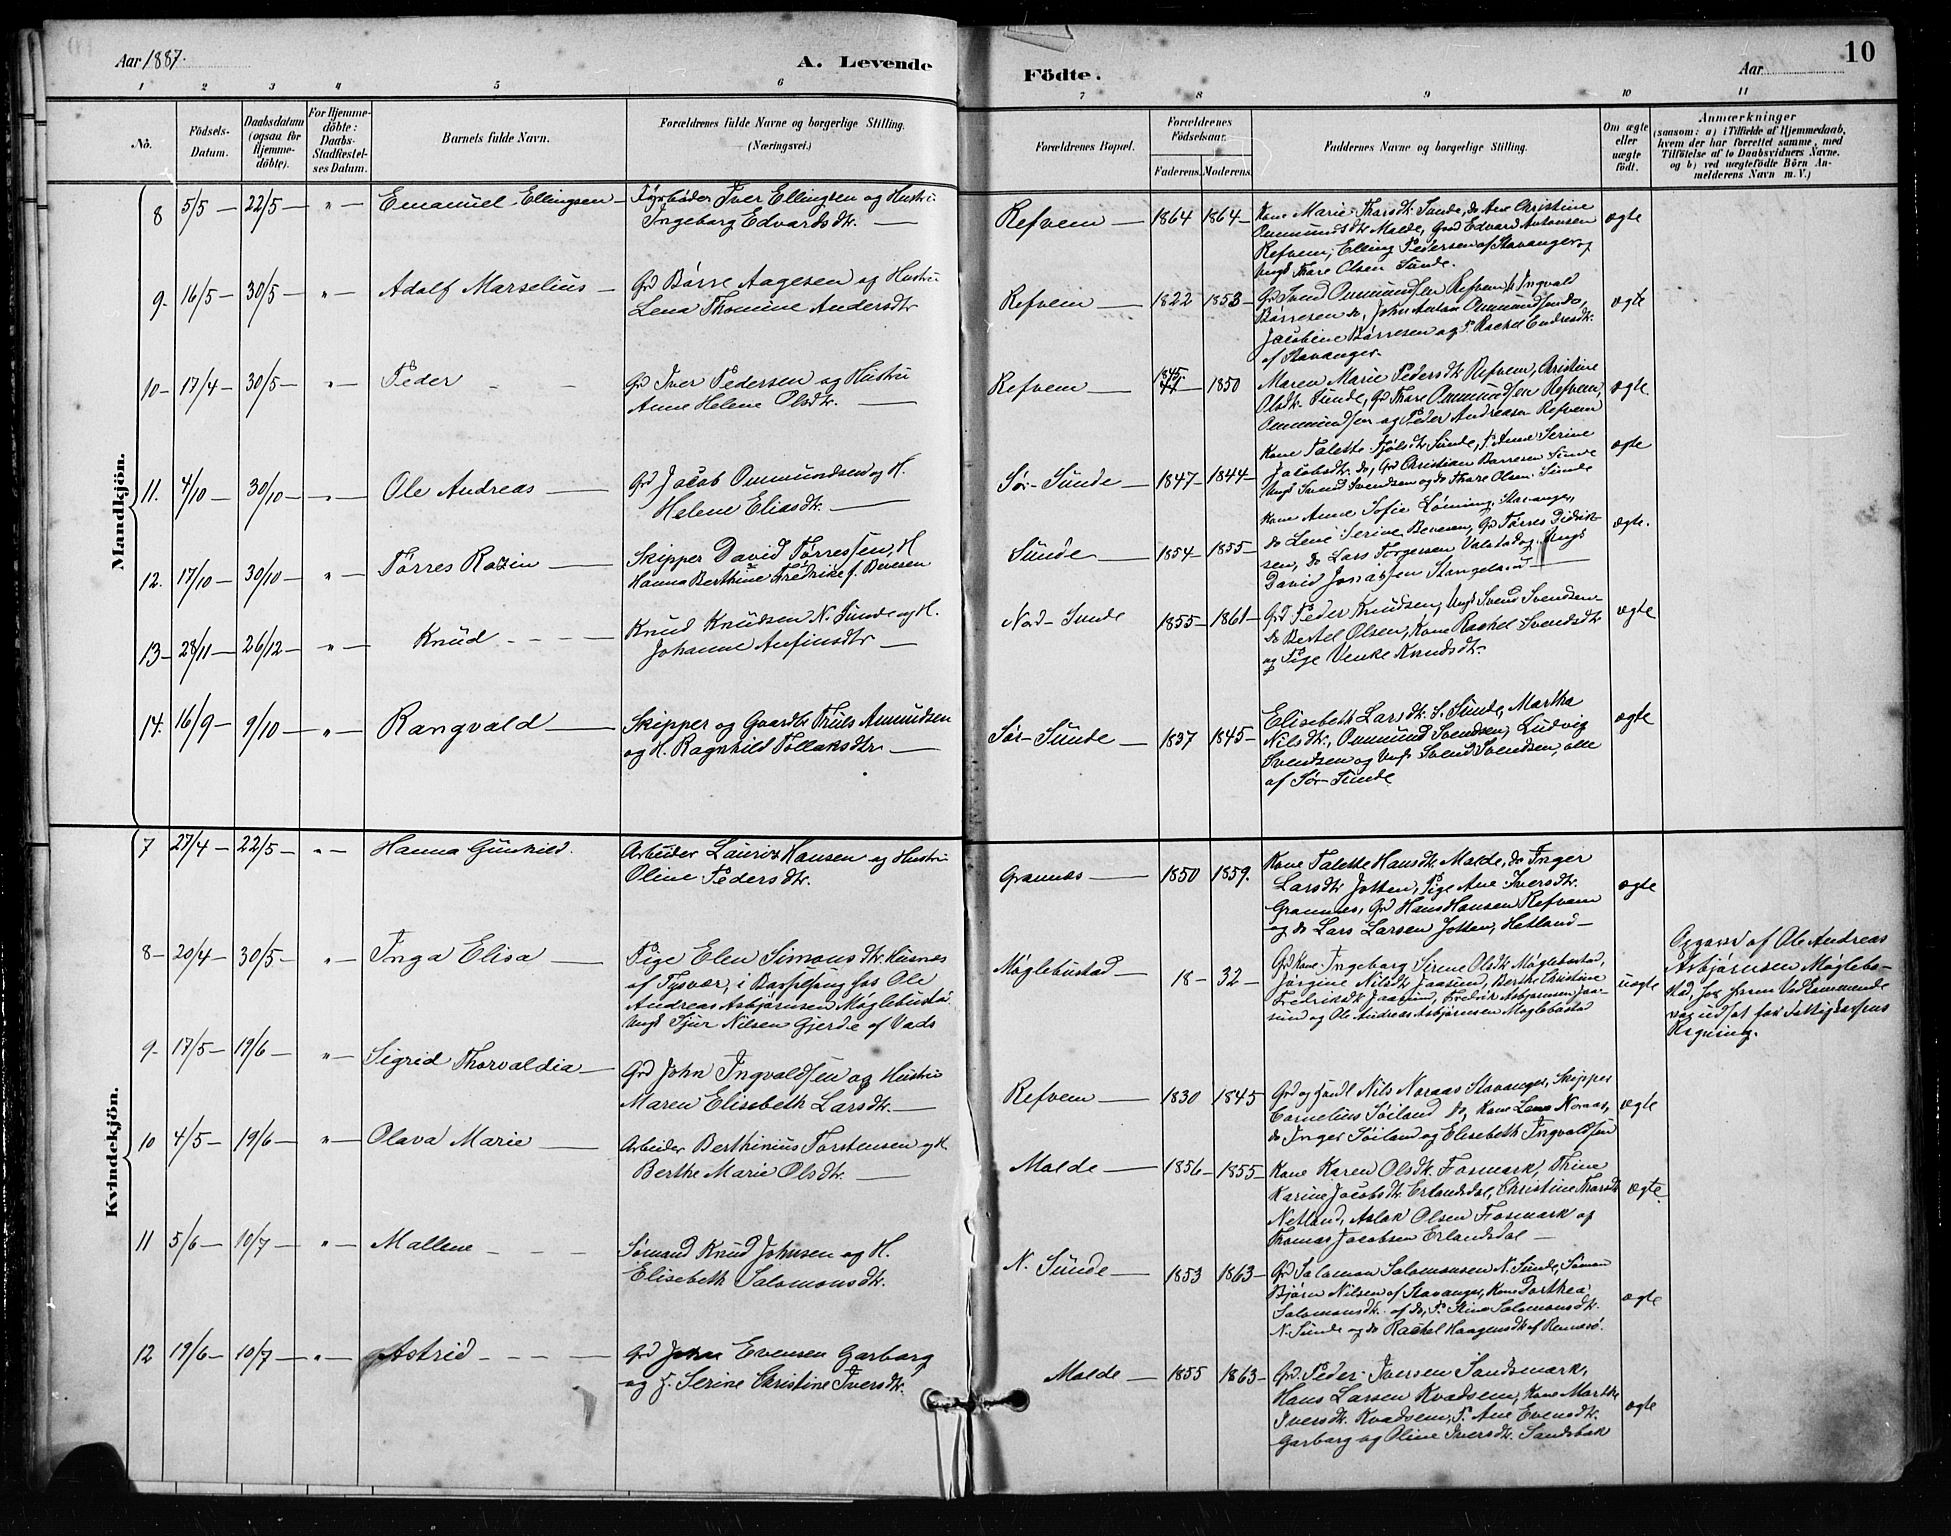 Aar 1887.
A. Levende
Födte.
Aar
10
1 2 3 4 5 6 7 8 9 10 11
No.
Födsels-
Datum.
Daabsdatum
(ogsaa for
Hjemme-
döbte).
For Hjemme-
döbte:
Daabs-
Stadfæstel-
ses Datum.
Barnets fulde Navn.
Forældrenes fulde Navne og borgerlige Stilling.
(Næringsvei.)
Forældrenes Bopæl.
Forældrenes
Födselsaar.
Faderens. Moderens.
Faddernes Navne og borgerlige Stilling.
Om ægte
eller
uægte
födt.
Anmærkninger
(saasom: a) i Tilfælde af Hjemmedaab,
hvem der har forrettet samme, med
Tilföielse af to Daabsvidners Navne,
og b) ved uægtefödte Börn An-
melderens Navn m. V.)
Mandkjön.
8 5/5 — 22/5 — " — Emanuel Ellingsen — Fyrbøder Iver Ellingsen og Hustru
Ingeborg Edvardsdtr. —
Refvem — 1864 1864 — Kone Marie Tharsdtr. Sunde, do Ane Christine
Ommundsdtr Malde, Grd Edvard Antonsen
Refvem, Elling Pedersen af Stavanger og
Ungk Thore Olsen Sunde.
ægte
9. 16/5 — 30/5 — " — Adolf Marselius — Grd Børre Aagesen og Hustru
Lena Thomine Andersdtr
Refvem — 1822 1853 — Grd Svend Ommundsen Refvem, Ingvald
Børresen do, John Anton Ommundsen do,
Jacobine Børresen og P. Rachel Endresdtr.
af Stavanger.
ægte
10 — 17/4 — 30/5 — " — Peder — — Grd Iver Pedersen og Hustru
Anne Helene Olsdtr. —
Refvem — 1845 1850 Maren Marie Pedersdtr Refvem, Christine
Olsdtr. Sunde, Grd Thore Ommundsen Refvem,
Ommundsen og Peder Andreasen Refvem
ægte
11. 4/10 — 30/10 — " — Ole Andreas — Grd Jacob Ommundsen og H.
Helene Eliasdtr. —
Sør-Sunde — 1847 — 1844 — Kone Talette Sunde, P. Anne Serine
Jacobsdtr. do, Grd Christian Børresen Sunde
Ungk Svend Svendsen og do Thore Olsen Sunde
ægte
12. 17/10 — 30/10 — " — Tørres Razin — Skipper David Tørressen, H
Hanna Berthine Fredrike f. Bveren
Sunde — 1854 — 1855 — Kone Anne Sofie Lønning, Stavanger,
do Lene Serine Beveren, Grd Tørres Didrik-
sen, do Lars Torgersen Valstad og Ungk
David Stangeland —
ægte.
13 — 28/11 — 26/12 — " — Knud — — — Knud Knudsen N. Sunde og H.
Johanne Anfinsdtr —
Nord-Sunde 1855 — 1861 — Grd Peder Knudsen, Ungk Svend Svendsen
do Bertel Olsen, Kone Rachel Svendsdtr
og Pige Venke Knudsdtr.
ægte
14. 16/9 — 9/10 — " — Rangvald — Skipper og Gaardbr Truls Amundsen
og H. Ragnhild Tollaksdtr. —
Sør-Sunde — 1837 1845 — Elisebeth Larsdtr. S. Sunde, Martha
Nilsdtr., Ommund Svendsen, Ludvig
Svendsen og Ungk Svend Svendsen, alle
af Sør-Sunde
ægte
Kvindekjön.
7 27/4 — 22/5 — " — Hanna Gunhild. Arbeider Lauritz Hansen og Hustru
Oline Pedersdtr.
Grannæs — 1850 1859. Kone Talette Hansdtr. Malde, do Inger
Larsdtr Jotten, Pige Ane Iversdtr.
Grannes, Grd Hans Hansen Refvem
og do Lars Larsen Jotten, Hetland —
ægte
8 — 20/4 — 30/5 — " — Inga Elisa — Pige Elen Simonsdtr. Husnæs
af Tysvær, i Barselseng hos Ole
Andreas Asbjørnsen Møglebustad
Ungk Sjur Nilsen Gjerde af Vads
Møglebustad — 18 — 32 — Grd Kone Ingeborg Sirene Olsdtr Møglebustad,
Jørgine Nilsdtr Jaasund, Berthe Christine
Fredriksdtr Jaasund, Fredrik Asbjørnsen Jaa-
sund og Ole Andreas Asbjørnsen Møglebustad
uægte
Opgaver af Ole Andreas
Asbjørnsen Møglebu-
stad, hos hvem Vedkommende
var udsat for Fattigkassens
Regning.
9 — 17/5 — 19/6 — " Sigrid Thorvaldia — Grd John Ingvaldsen og Hustru
Maren Elisebeth Larsdtr. —
Refvem — 1830 1845 Grd og Handl Nils Noraas Stavanger, Skipper
Cornelius Søiland do, Kone Lena Noraas,
do Inger Søiland og Elisebeth Ingvaldsen
ægte
10 4/5 — 19/6 — " — Olava Marie — Arbeider Berthinius Torstensen og H.
Berthe Marie Olsdtr. —
Malde — 1856 — 1855 — Kone Karen Olsdtr. Fosmark, Thine
Karine Jacobsdtr Erlandsdal, Christine Tharsdtr
Netland, Aslak Olsen Fosmark og
Thomas Jacobsen Erlandsdal —
ægte
11 5/6 — 10/7 — " — Mallene — — — Sømand Knud Johnsen og H.
Elisebeth Salomonsdtr.
N. Sunde — 1853 1863 — Grd Salomon Salomonsen N. Sunde, Sømand
Bjørn Nilsen af Stavanger, Kone Dorthea
Salomonsdtr. af do, P. Stine Salomonsdtr.
N. Sunde og do Rachel Haagensdtr af Rennesø.
ægte
12 19/6 — 10/7 — " — Astrid — — — Grd John Evensen Garborg
og H. Serine Christine Iversdtr.
Malde — 1855 1863 — Grd Peder Iversen Sandsmark,
Hans Larsen Kvadsem, Kone Marthe
Iversdtr. Kvadsem, P. Ane Evensdtr.
Garborg og Oline Iversdtr. Sandsbak
ægte